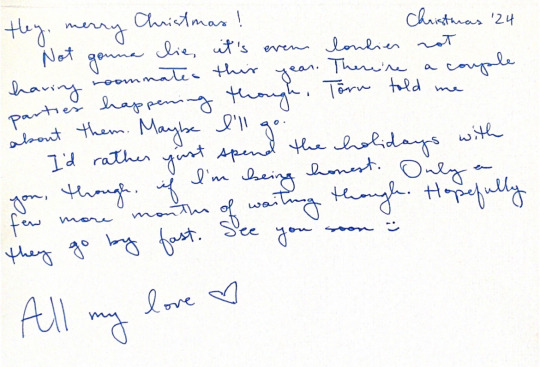 Hey, merry Christmas! Christmas '24
Not gonna lie, it's even lonlier not
having roommates this year. There're a couple
parties happening though, Toru told me
about them. Maybe I'll go.
I'd rather just spend the holidays with
you, though, if I'm being honest. Only a
few more months of waiting though. Hopefully
they go by fast. See you soon
All my love ♡